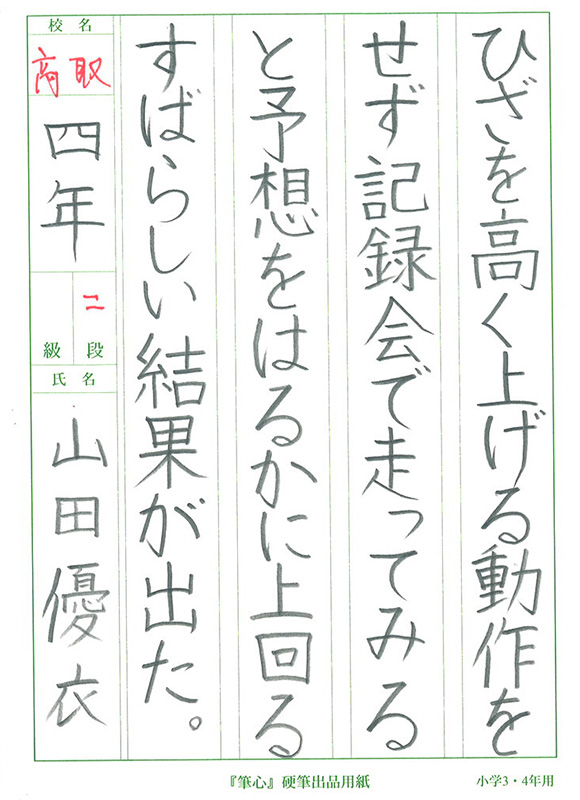 ひざを高く上げる動作を
せず記録会で走ってみる
と予想をはるかに上回る
すばらしい結果が出た。
校名
高取
四年
二
段
級
氏名
山田優衣
『筆心』硬筆出品用紙
小学3・4年用